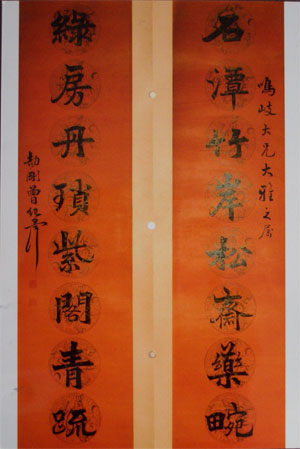 鳴岐大兄大雅之屬
石潭竹岸松齋藥畹
綠房丹瑣紫閣青疏
劼剛曾紀澤